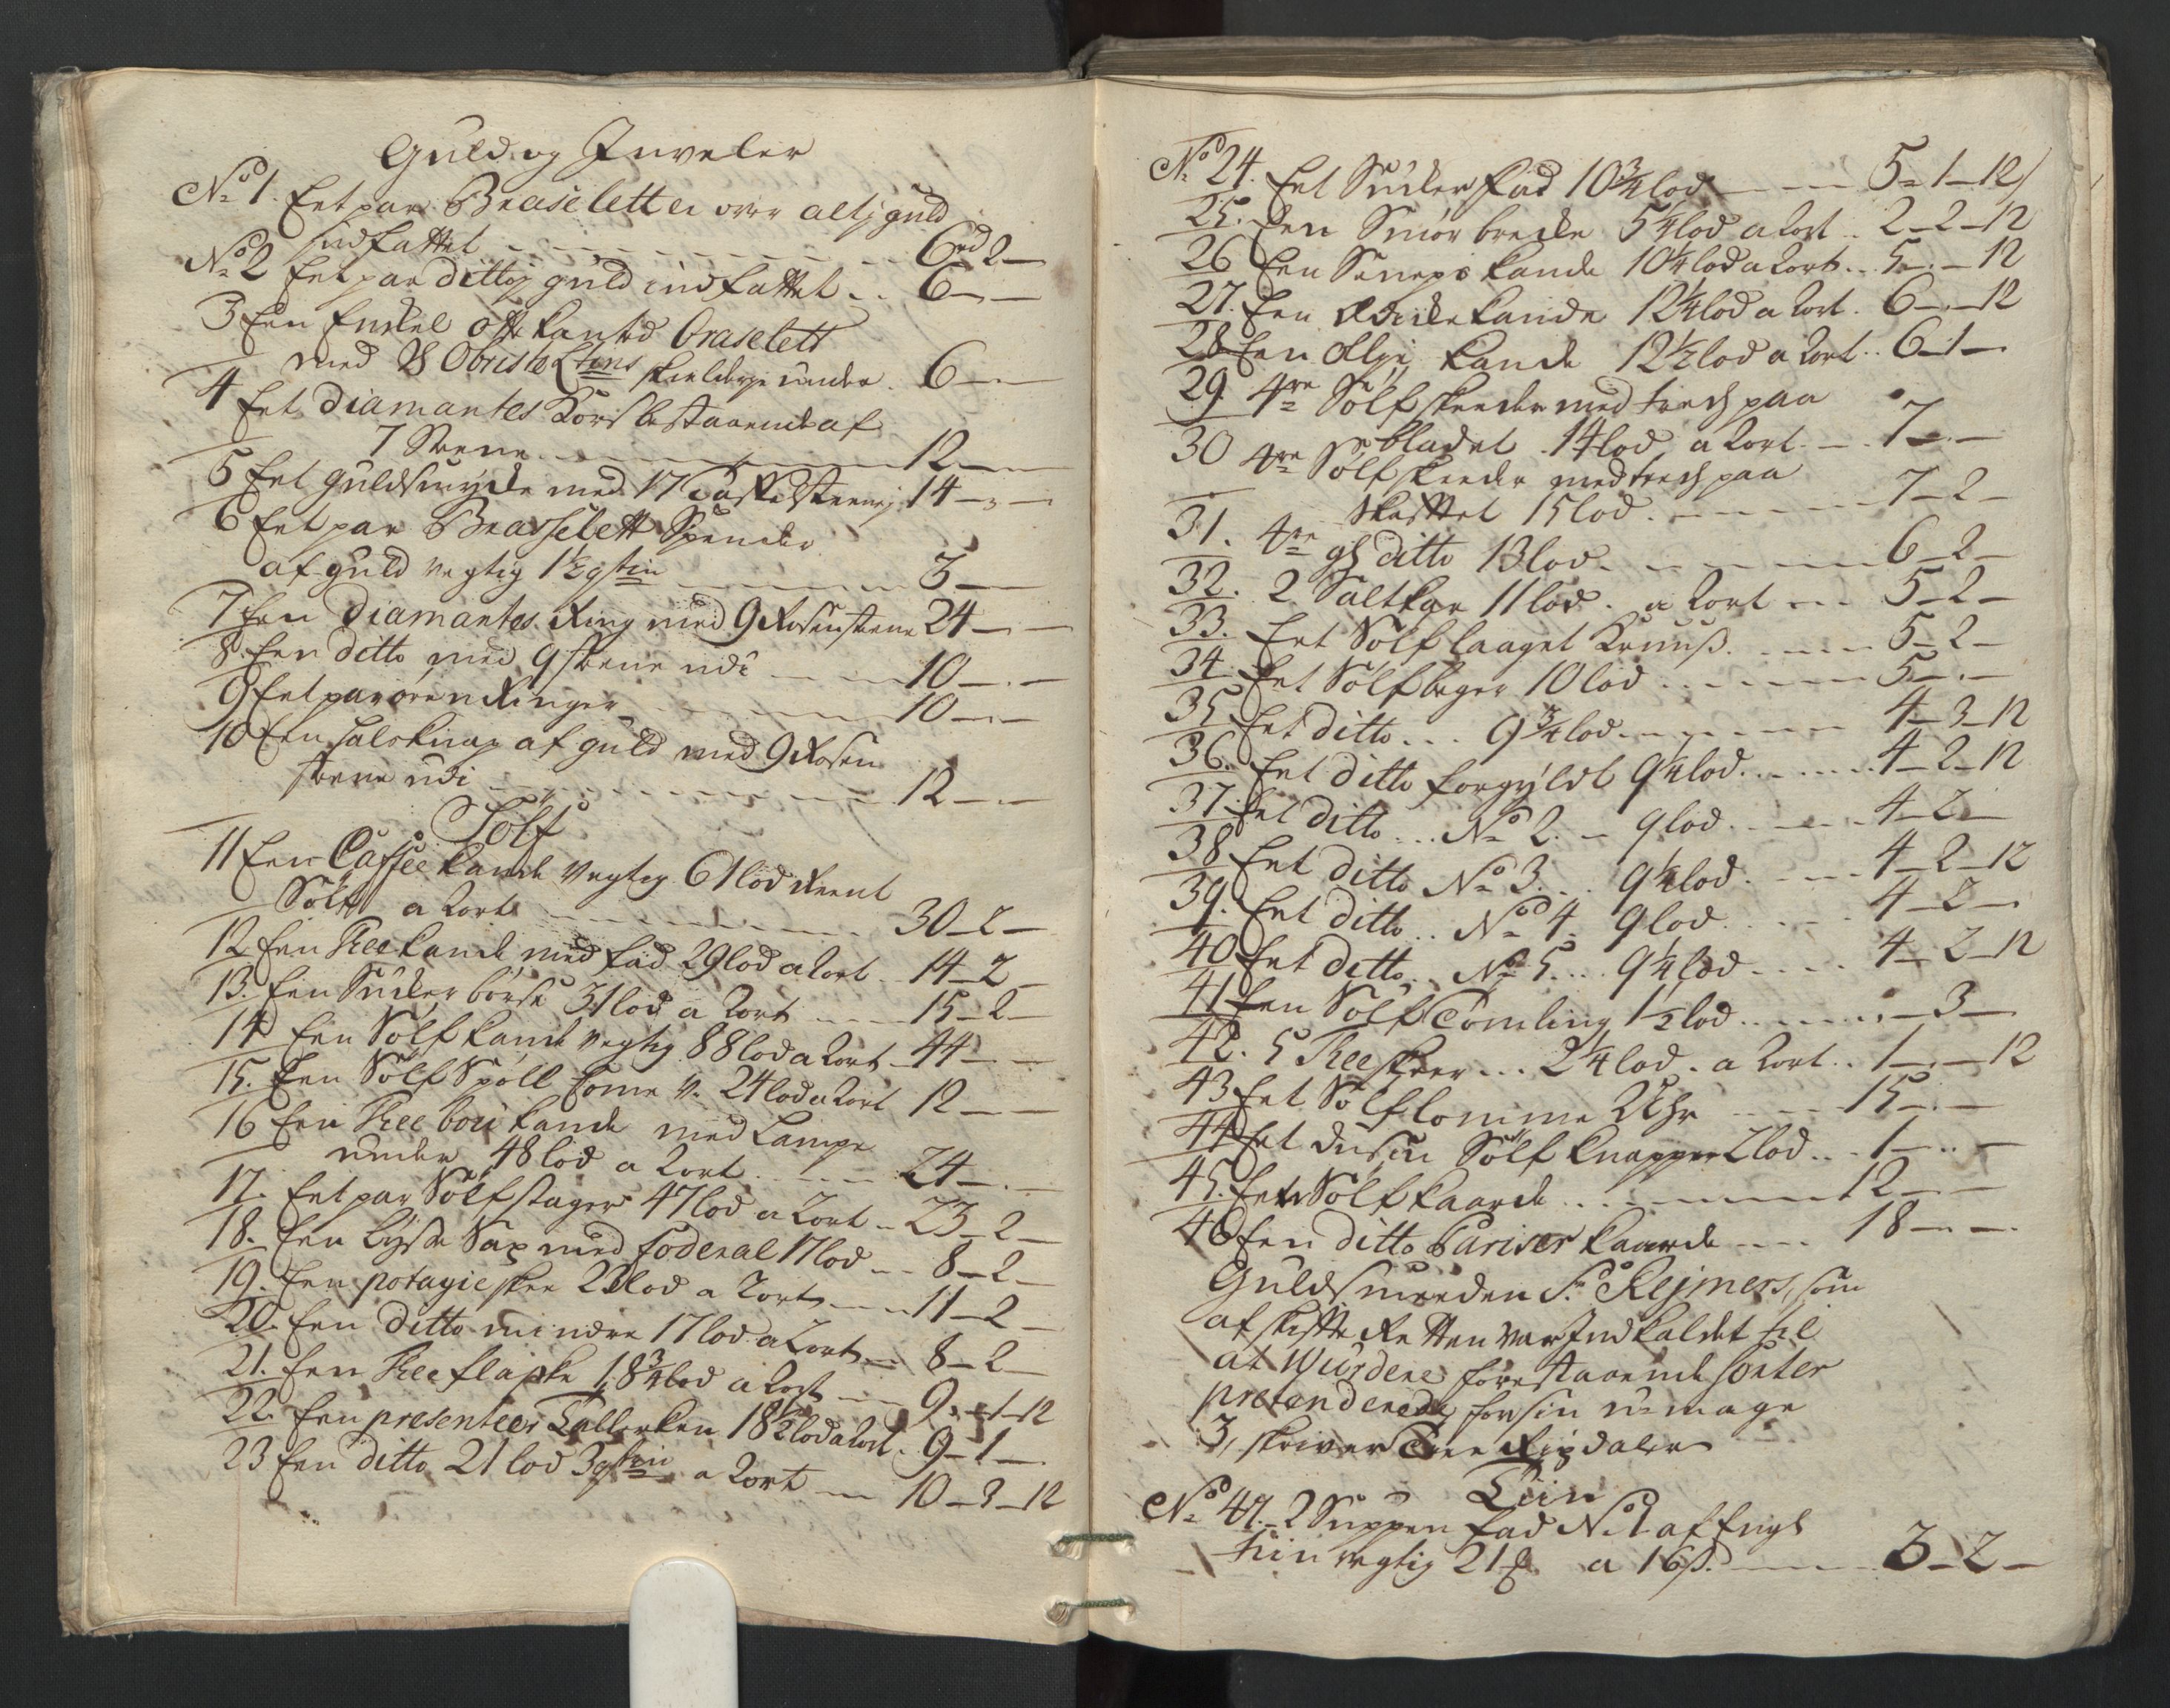 Guld og Juveler
No 1. Eet par Braseletter over alt j guld
indfattet 6 rd 2 —
No 2 Eet par ditto j guld indfattet .. 6 — —
3 Een Enkel otte kanted Braselett
med Obriste skilderje under . 6 — —
4 Eet Diamantes Kors bestaaende af
7 Steene 12 — —
5 Eet guldsmycke med 17 14 — „ —
6 Eet par Brasselett Spender
af guld vegtig 1½ qtin 3 —
7 Een Diamantes Ring med 9 Rosensteene 24 — —
8. Een ditto med 9 steene udi 10 — . —
9 Eet par øren Ringer 10 — . —
10 Een halsknap af guld med 9 Rosen
steene udi 12 — . —
Sølf
11 Een Caffee kande vegtig 61 lod Reent
Sølf a 2ort 30 — 2 —
12 Een Thee kande med fad 29 lod a 2ort . 14 — 2 —
13. Een Sucker börse 31 lod a 2ort 15 — 2 —
14 Een Sølf kande vegtig 88 lod a 2ort — 44 — —
15. Een Sølf Spöll Come v. 24 lod a 2ort 12 — —
16 Een Thee kande med Lampe
under 48 lod a 2ort 24 — . —
17. Eet par Sølf stager 47 lod a 2ort — 23 — 2 —
18. Een Lysse Sax med foderal 17 lod — 8 — 2 —
19. Een potagie skee 23 lod a 2ort 11 — 2 —
20. Een ditto mindre 17 lod a 2ort — 8 — 2 —
21. Een Thee flaske 18¾ lod a 2ort 9 . — 1 — 12
22. Een presenteer Tallerken 18½ lod a 2ort . 9 — 1 —
23 Een ditto 21 lod 3 qtin a 2ort — 10 — 3 — 12
No 24. Eet Sucker fad 10¾ lod 5 — 1 — 12
25. Een Smør brecke 5¼ lod a 2ort .. 2 — 2 — 12
26 Een Seneps kande 10¼ lod a 2ort .. 5 — . — 12
27. Een Edicke kande 12¼ lod a 2ort . 6 — . — 12
28 Een Ollje kande 12½ lod a 2ort .. 6 — 1 —
29. 4re Sølf skeeder med treck paa
bladet 14 lod a 2ort — . 7 — . —
30 4re Sølf skeeder med treck paa
skafftet 15 lod . 7 — 2 —
31. 4re ditto 13 lod . 6 — 2 —
32. 2 Saltkar 11 lod . a 2ort — 5 — 2 —
33. Eet Sølf laaget Kruuß . 5 — 2 —
34. Eet Sølf beger 10 lod 5 — . —
35 Eet ditto ... 9¾ lod 4 — 3 — 12
36. Eet ditto forgyldt 9¼ lod 4 — 2 — 12
37. Eet ditto ... No 2. — 9 lod . 4 — 2 —
38 Eet ditto No 3 ... 9¼ lod . 4 — 2 — 12
39. Eet ditto .. No 4. 9 lod . 4 — 2 —
40 Eet ditto .. No 5 ... 9¼ lod 4 — 2 — 12
41 Een Sølf Tömling 1½ lod — 3 —
42. 5 Thee skeer ... 2¼ lod . a 2ort .. 1 — . — 12
43 Eet Sølf lomme Uhr 15 — . —
44 Eet dusin Sølf knapper 2 lod ... 1 — .. —
45. Een Sølf kaarde 12 — —
46 Een ditto Pariser kaarde 18 — —
Guldsmeeden Sr. Rejmers, som
af skifte Retten var Indkaldet til
at Wurdere forestaaende poster
prætenderede for sin umage
3, skriver Tree Rixdaler
Tiin
No 47. 2 Suppen fad No 1 af Engl
tiin vegtig 21 ₰ a 16 ß. 3 — 2 —